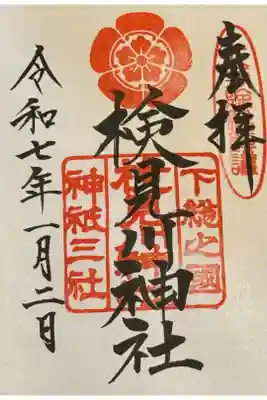 奉拝
下総之國
検見川神社
神祇三社
令和七年一月二日